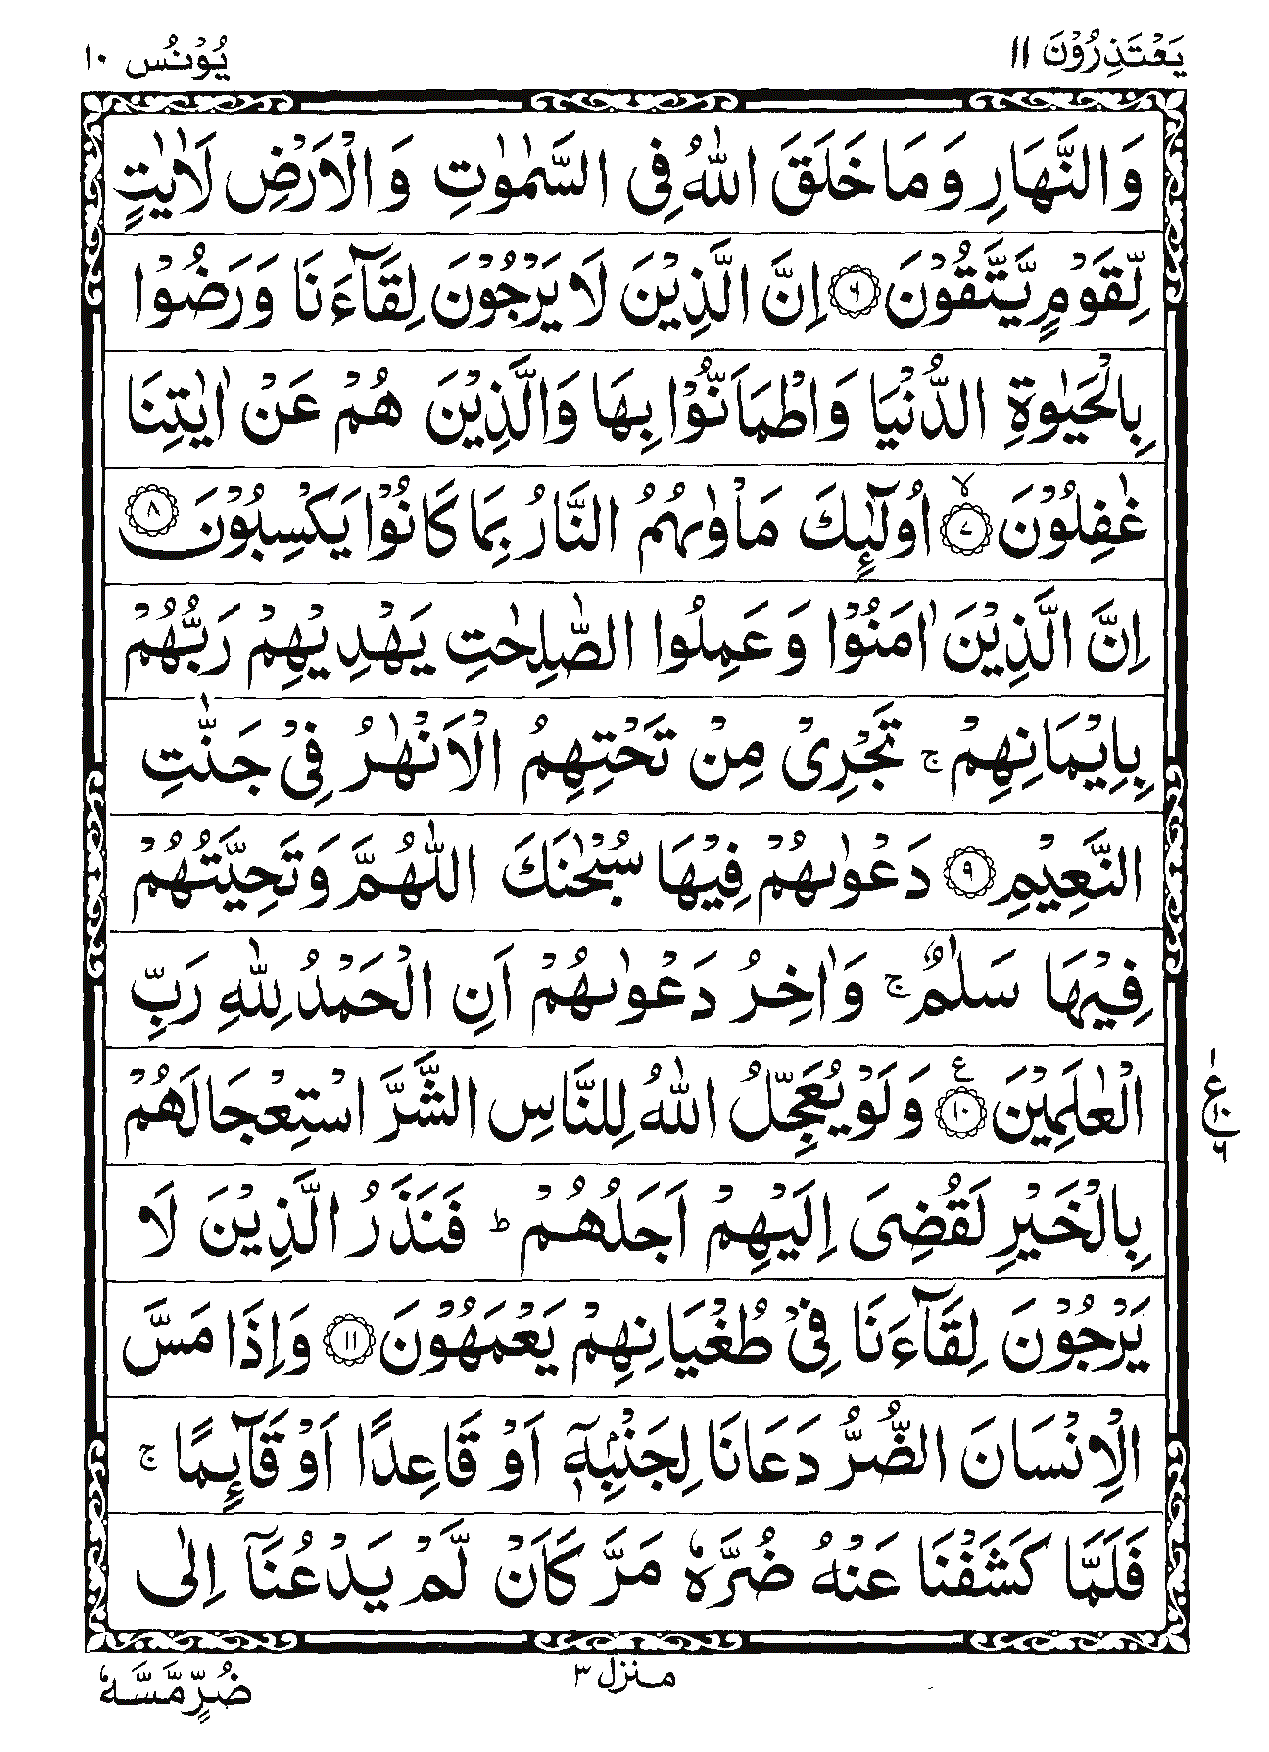 يَعْتَذِرُوْنَ ١١
يُوْنُس ١٠
وَالنَّهَارِ وَمَا خَلَقَ اللّٰهُ فِى السَّمٰوٰتِ وَالْاَرْضِ لَاٰيٰتٍ
لِّقَوْمٍ يَّتَّقُوْنَ ۝٦ اِنَّ الَّذِيْنَ لَا يَرْجُوْنَ لِقَآءَنَا وَرَضُوْا
بِالْحَيٰوةِ الدُّنْيَا وَاطْمَاَنُّوْا بِهَا وَالَّذِيْنَ هُمْ عَنْ اٰيٰتِنَا
غٰفِلُوْنَ ۙ۝٧ اُولٰٓئِكَ مَاْوٰىهُمُ النَّارُ بِمَا كَانُوْا يَكْسِبُوْنَ ۝٨
اِنَّ الَّذِيْنَ اٰمَنُوْا وَعَمِلُوا الصّٰلِحٰتِ يَهْدِيْهِمْ رَبُّهُمْ
بِاِيْمَانِهِمْ ۚ تَجْرِىْ مِنْ تَحْتِهِمُ الْاَنْهٰرُ فِىْ جَنّٰتِ
النَّعِيْمِ ۝٩ دَعْوٰىهُمْ فِيْهَا سُبْحٰنَكَ اللّٰهُمَّ وَتَحِيَّتُهُمْ
فِيْهَا سَلٰمٌ ۚ وَاٰخِرُ دَعْوٰىهُمْ اَنِ الْحَمْدُ لِلّٰهِ رَبِّ
الْعٰلَمِيْنَ ۝١٠ ع وَلَوْ يُعَجِّلُ اللّٰهُ لِلنَّاسِ الشَّرَّ اسْتِعْجَالَهُمْ
ع ١ ١٠ ٦
بِالْخَيْرِ لَقُضِىَ اِلَيْهِمْ اَجَلُهُمْ ؕ فَنَذَرُ الَّذِيْنَ لَا
يَرْجُوْنَ لِقَآءَنَا فِىْ طُغْيَانِهِمْ يَعْمَهُوْنَ ۝١١ وَاِذَا مَسَّ
الْاِنْسَانَ الضُّرُّ دَعَانَا لِجَنْۢبِهٖۤ اَوْ قَاعِدًا اَوْ قَآئِمًا ۚ
فَلَمَّا كَشَفْنَا عَنْهُ ضُرَّهٗ مَرَّ كَاَنْ لَّمْ يَدْعُنَاۤ اِلٰى
منزل ٣
ضُرٍّ مَّسَّهٗ